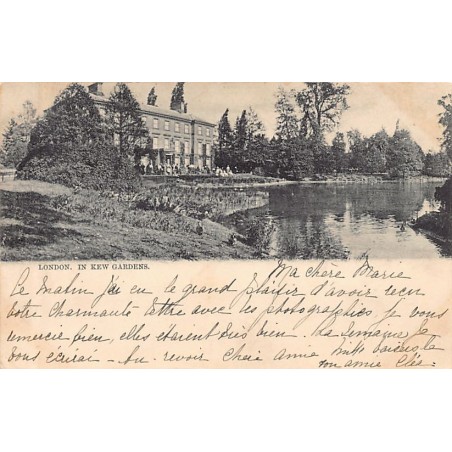 LONDON. IN KEW GARDENS.
Ma chère Marie
Le Matin j'ai eu le grand plaisir d'avoir recu
votre Charmante lettre avec les photographies je vous
remercie bien, elles étaient très bien. La Semaine je
vous écrirai - Au revoir chère amie mille baisers de
ton amie Cléo.